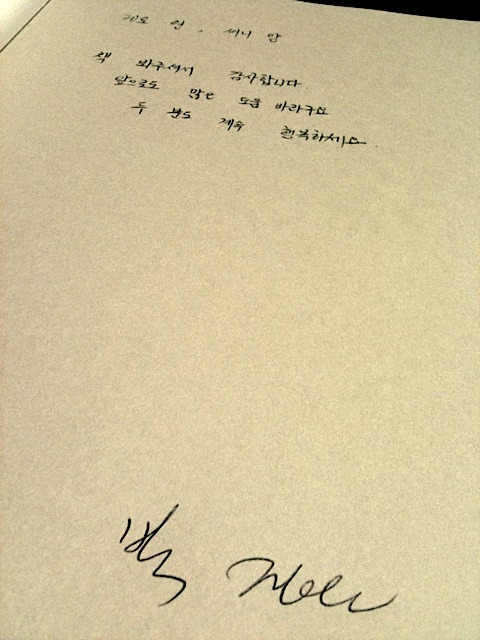 케로 형, 써니 양
책 봐주셔서 감사합니다.
앞으로도 많은 도움 바라구요
두 분도 계속 행복하세요.
박